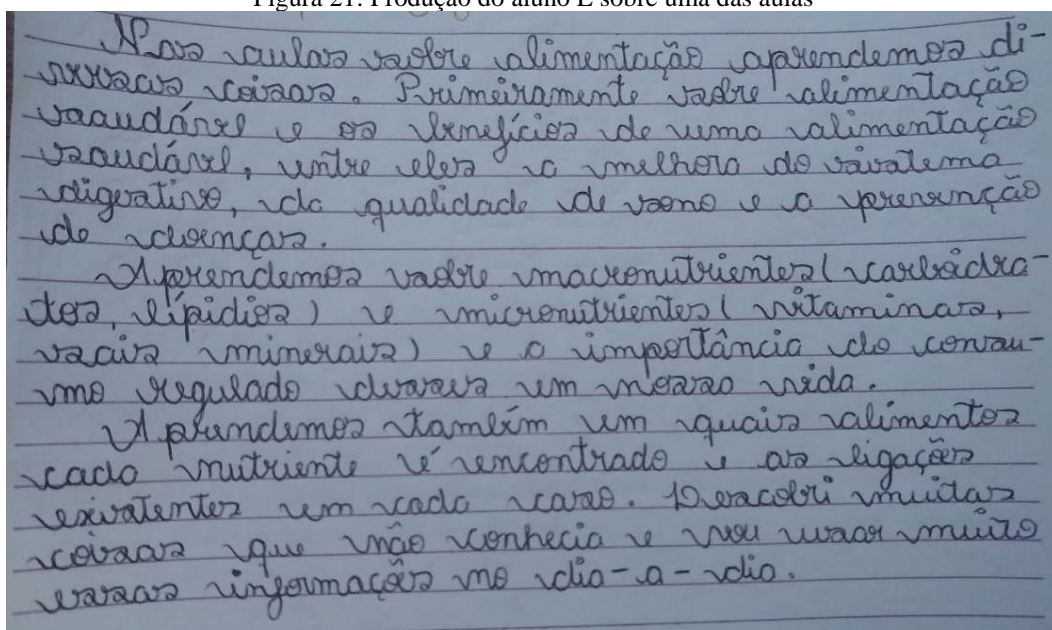 Figura 21: Produção do aluno E sobre uma das aulas
Nas aulas sobre alimentação aprendemos di-
versas coisas. Primeiramente sobre alimentação
saudável e os benefícios de uma alimentação
saudável, entre eles a melhora do sistema
digestivo, da qualidade de sono e a prevenção
de doenças.
Aprendemos sobre macronutrientes (carboidra-
tos, lipídios) e micronutrientes (vitaminas,
sais minerais) e a importância do consu-
mo regulado desses em nossa vida.
Aprendemos também em quais alimentos
cada nutriente é encontrado e as ligações
existentes em cada caso. Descobri muitas
coisas que não conhecia e vou usar muito
essas informações no dia-a-dia.